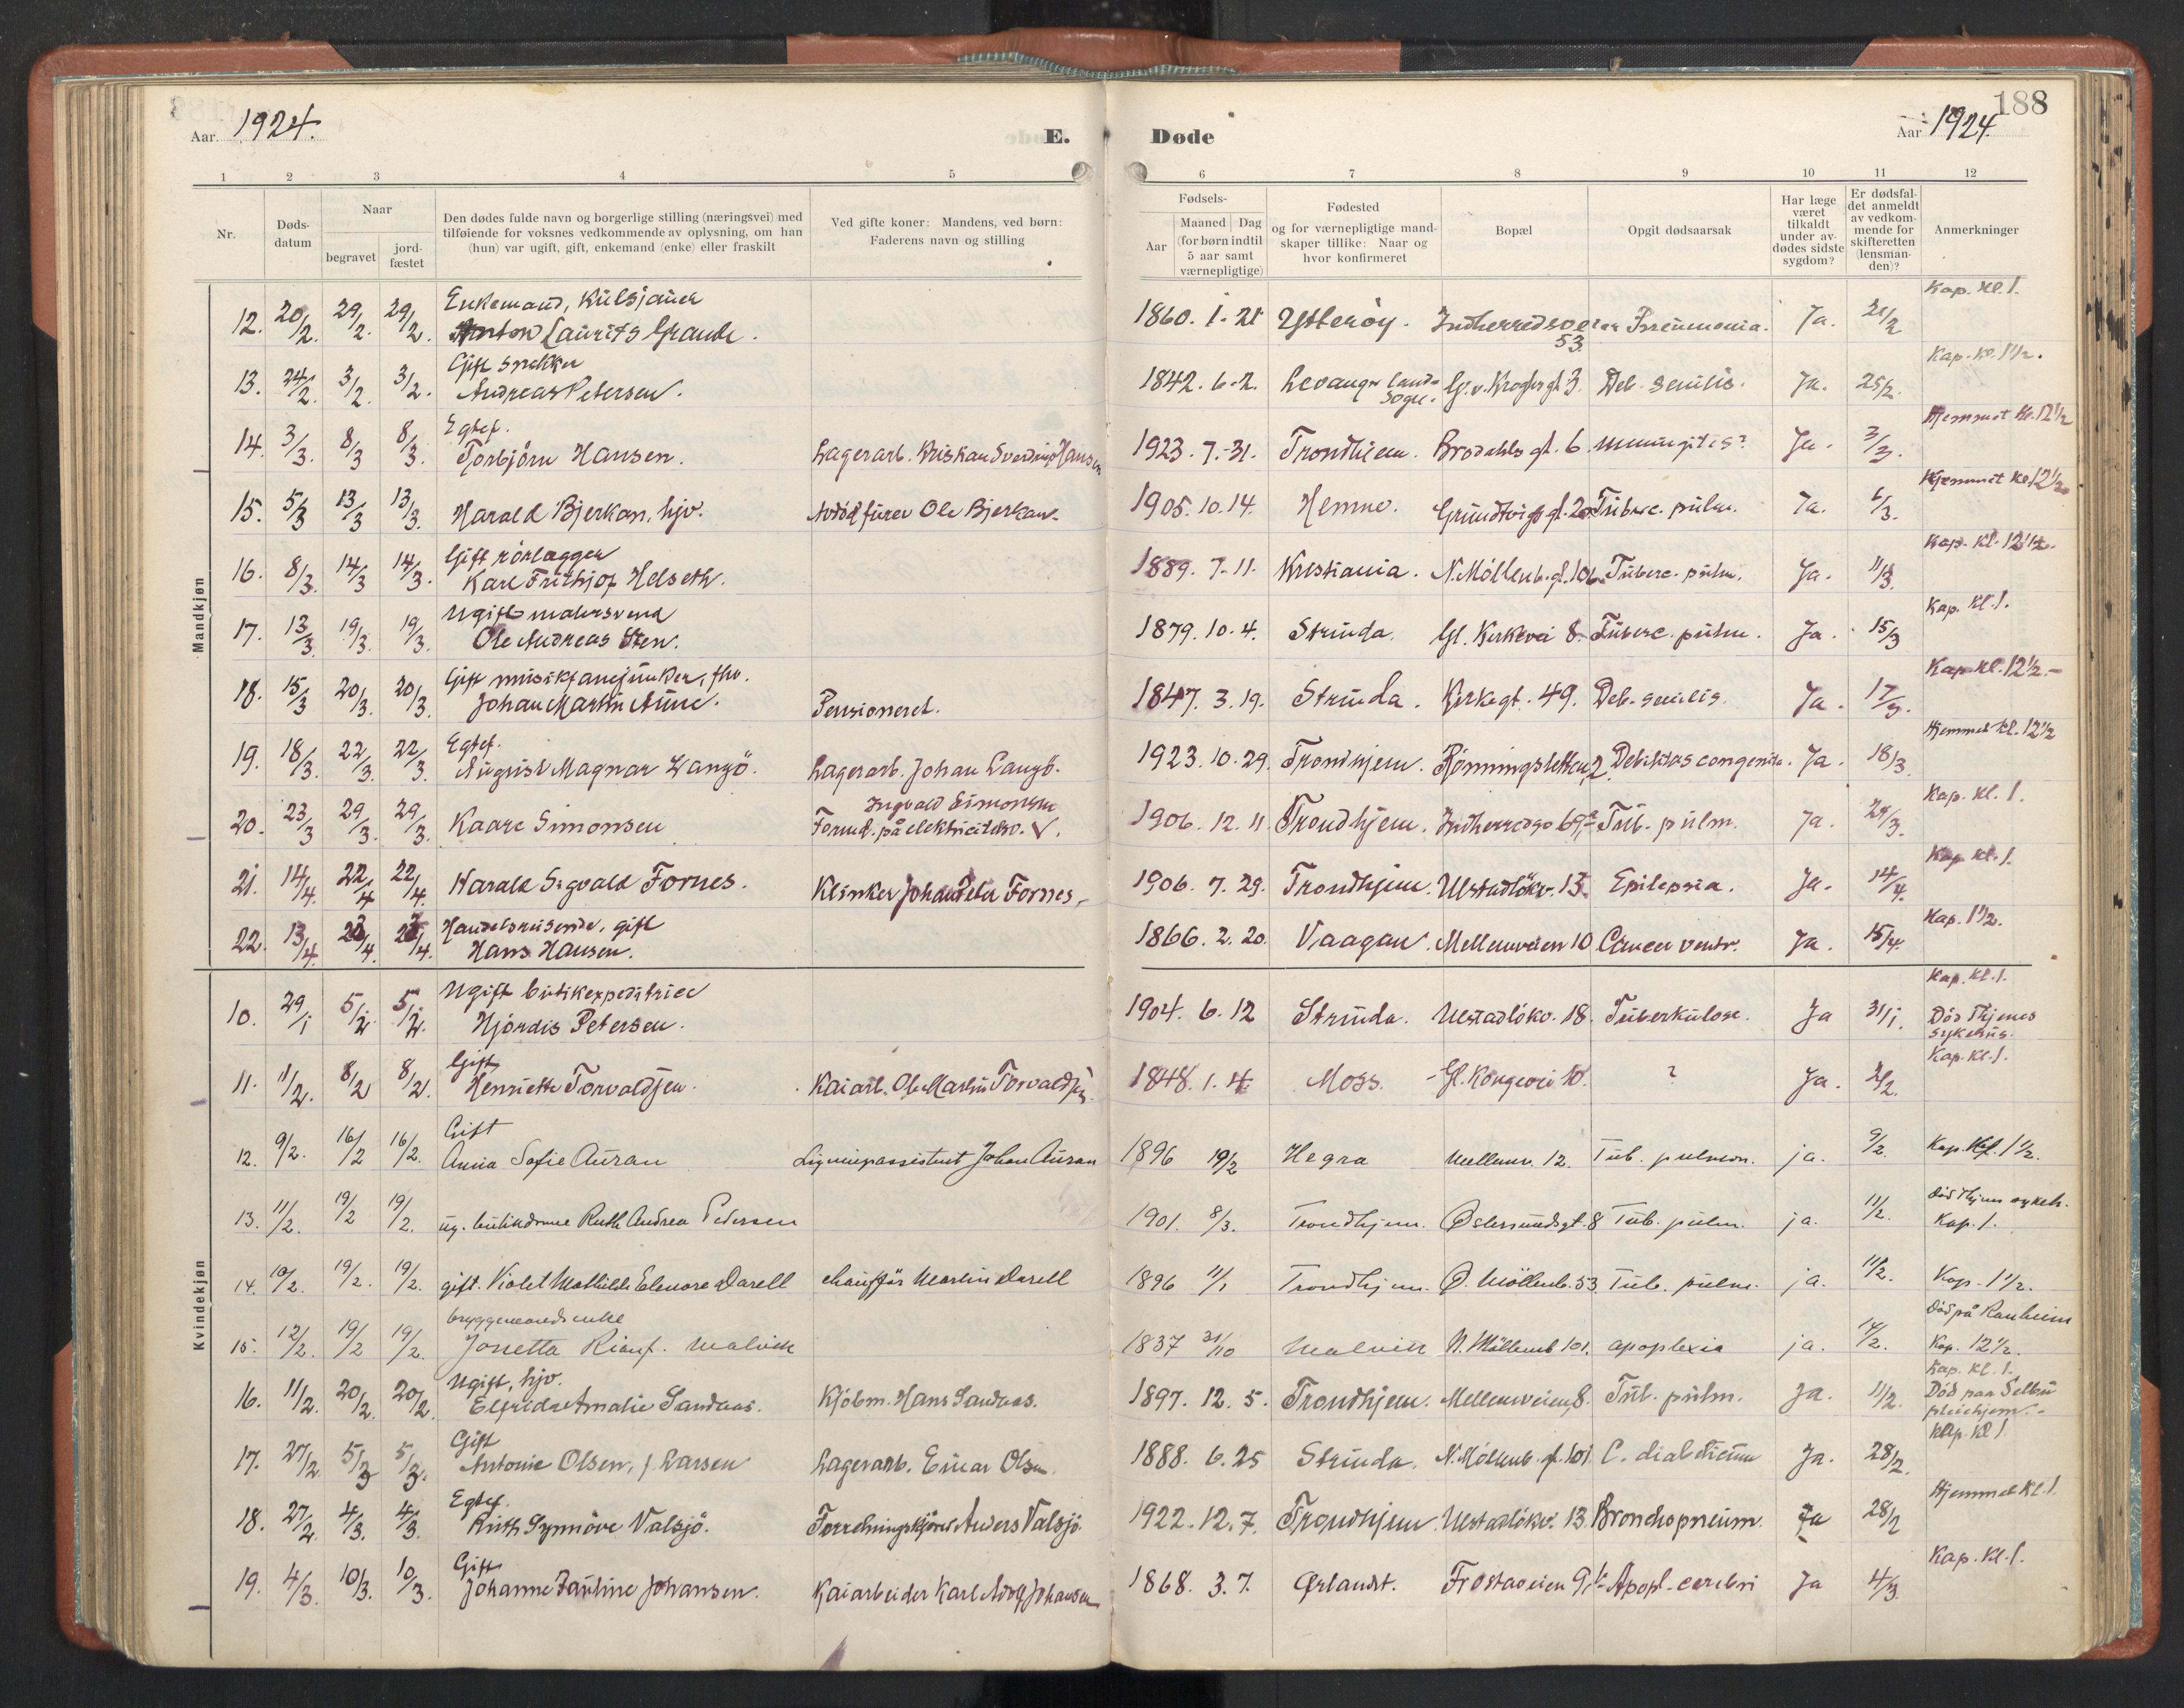 188
Aar. 1924. E. Døde Aar 1924.
1 2 3 4 5 6 7 8 9 10 11 12
Nr. Døds-datum Naar begravet jord-fæstet Den dødes fulde navn og borgerlige stilling (næringsvei) med tilføiende for voksnes vedkommende av oplysning, om han (hun) var ugift, gift, enkemand (enke) eller fraskilt Ved gifte koner: Mandens, ved børn: Faderens navn og stilling Fødsels- Aar Maaned Dag (for børn indtil 5 aar samt værnepligtige) Fødested og for værnepligtige mandskaper tillike: Naar og hvor konfirmeret Bopæl Opgit dødsaarsak Har læge været tilkaldt under avdødes sidste sygdom? Er dødsfaldet anmeldt av vedkommende for skifteretten (lensmanden)? Anmerkninger
Mandkjøn
Enkemand, Kulsjauer Kap. kl. 1.
12. 20/2. 29/2. 29/2. Anton Laurits Grande. 1860. 1. 21 Ytterøy. Indherredsvei 53. Pneumonia. Ja. 21/2
Gift snekker Kap. kl. 1 1/2.
13. 24/2 3/2. 3/2. Andreas Petersen. 1842. 6-2. Levanger landsogn. G. v. Kroghs gt. 3. Deb. senilis. Ja. 25/2.
Egtef. Hjemmet kl. 12 1/2
14. 3/3. 8/3 8/3. Torbjörn Hansen. Lagerarb. Kristian Hansen 1923. 7.-31. Trondhjem. Brodahls gt. 6. meningitis? Ja. 3/3.
Hjemmet kl 12 1/2
15. 5/3 13/3 13/3. Harald Bjerkan, hjv. Ole Bjerkan. 1905. 10. 14. Hemne. Grundtvigs gt. 20 Tuberc. pulm. Ja. 6/3.
Gift rörlægger Kap. kl. 12 1/2.
16. 8/3. 14/3 14/3. Karl Frithjof Helseth. 1889. 7-11. Kristiania. N. Möllenb. gt. 106. Tuberc. pulm. Ja. 11/3.
Ugift malersvend Kap. kl. 1.
17. 13/3. 19/3. 19/3. Ole Andreas Sten. 1879. 10. 4. Strinda. Gl. Kirkevei 8. Tuberc. pulm. Ja. 15/3
Gift musikfanejunker, fhv. Kap kl. 12 1/2.-
18. 15/3 20/3. 20/3. Johan Martin Aune. Pensioneret. 1847. 3. 19. Strinda. Kirkegt. 49. Deb. senilis. Ja. 17/3.
Egtef. Hjemmet kl. 12 1/2
19. 18/3. 22/3. 22/3. August Magnar Langö. Lagerarb. Johan Langö. 1923. 10. 29. Trondhjem. Rönningsletten 2 Debilitas congenita. Ja. 18/3.
Ingvald Simonsen Kap. kl. 1.
20. 23/3 29/3. 29/3. Kaare Simonsen Formd. på elektricitetsv. V. 1906. 12. 11. Trondhjem. Indherredsv 69a Tub. pulm. Ja. 24/3.
Kap kl. 1.
21. 14/4. 22/4 22/4. Harald Sigvald Fornes. Klinker Johan Peter Fornes. 1906. 7. 29. Trondhjem. Ulstadlökv. 13. Epilepsia. Ja. 14/4.
Handelsreisende, gift Kap. 1 1/2.
22. 13/4. 23/4. 23/4. Hans Hansen. 1866. 2. 20. Vaagan. Mellemveien 10 Cancer ventr. Ja. 15/4.
Kvindekjøn
Ugift butikexpeditrice Kap. kl. 1.
10. 29/1 5/2. 5/2. Hjördis Petersen. 1904. 6. 12 Strinda. Ulstadlökv. 18. Tuberkulose. Ja 31/1. Död Thjems sykehus.
Gift Kap. kl. 1.
11. 1/2. 8/2 8/2. Henriette Torvaldsen. Kaiarb. Ole Martin Torvaldsen. 1848. 1. 4. Moss. Gl. Kongevei 10. ? Ja. 2/2.
Gift
12. 9/2. 16/2 16/2. Anna Sofie Auran Ligningsassistent Johan Auran 1896 19/2 Hegra Mellemv. 12. Tub. pulmon. ja. 9/2. Kap. Kl. 1 1/2.
13. 11/2. 19/2 19/2. ug. butikdame Ruth Andrea Pedersen 1901. 8/3. Trondhjem. Østersundsgt. 8 Tub. pulm. ja. 11/2. Död Thjem sykeh. Kap. 1.
14. 10/2. 19/2. 19/2. gift. Violet Mathilde Elenore Darell chauffør Martin Darell 1896 11/1 Trondhjem. Ø. Möllenb. 53 Tub. pulm. ja. 11/2. Kap. 1 1/2.
bryggemands enke Död på Ranheim
15. 12/2. 19/2 19/2. Jonetta Malvik 1837 31/10 Malvik N. Möllenb 101. apoplexia ja. 14/2. Kap. 12 1/2.
Ugift, hjv. Kap. kl. 1.
16. 11/2. 20/2. 20/2. Elfrida Amalie Sandaas. Kjöbm. Hans Sandaas. 1897. 12. 5. Trondhjem. Mellemveien 8. Tub. pulm. Ja. 11/2. Död paa Selbu pleiehjem.
Gift Kap. kl 1.
17. 27/2. 5/3 5/3. Antonie Olsen, f. Larsen Lagerarb. Einar Olsen. 1888. 6. 25 Strinda. N. Möllenb. gt. 101. C. diabeticum Ja. 28/2.
Egtef. Hjemmet kl. 1.
18. 27/2. 4/3. 4/3. Ruth Synnöve Valsjö. Forretningskjörer Anders Valsjö. 1922. 12. 7. Trondhjem Ulstadlökv. 13 Bronchopneum. Ja 28/2
Gift Kap. kl. 1.
19. 4/3. 10/3. 10/3. Johanne Pauline Johansen. Kaiarbeider Karl Adolf Johansen 1868. 3. 7. Ørlandt. Frostaveien 9 Apopl. cerebri Ja 4/3.